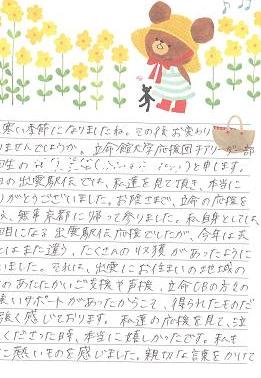 寒い季節になりましたね。その後お変わり
りませんでしょうか。立命館大学応援団チアリーダー部
回生の
と申します。
の出雲駅伝では、私達を見て頂き、本当に
りがとうございました。お陰さまで、立命の応援を
え、無事京都に帰って参りました。私自身としては、
回目になる出雲駅伝応援でしたが、今年は去
とはまた違う、たくさんの収穫があったように
いました。それは、出雲にお住まいの地域の
のあたたかいご支援や声援、立命OBの方々の
いサポートがあったからこそ、得られたものだ
強く感じております。私達の応援を見て、泣
くださった時、本当に嬉しかったです。私も
に熱いものを感じました。親切な言葉をかけて